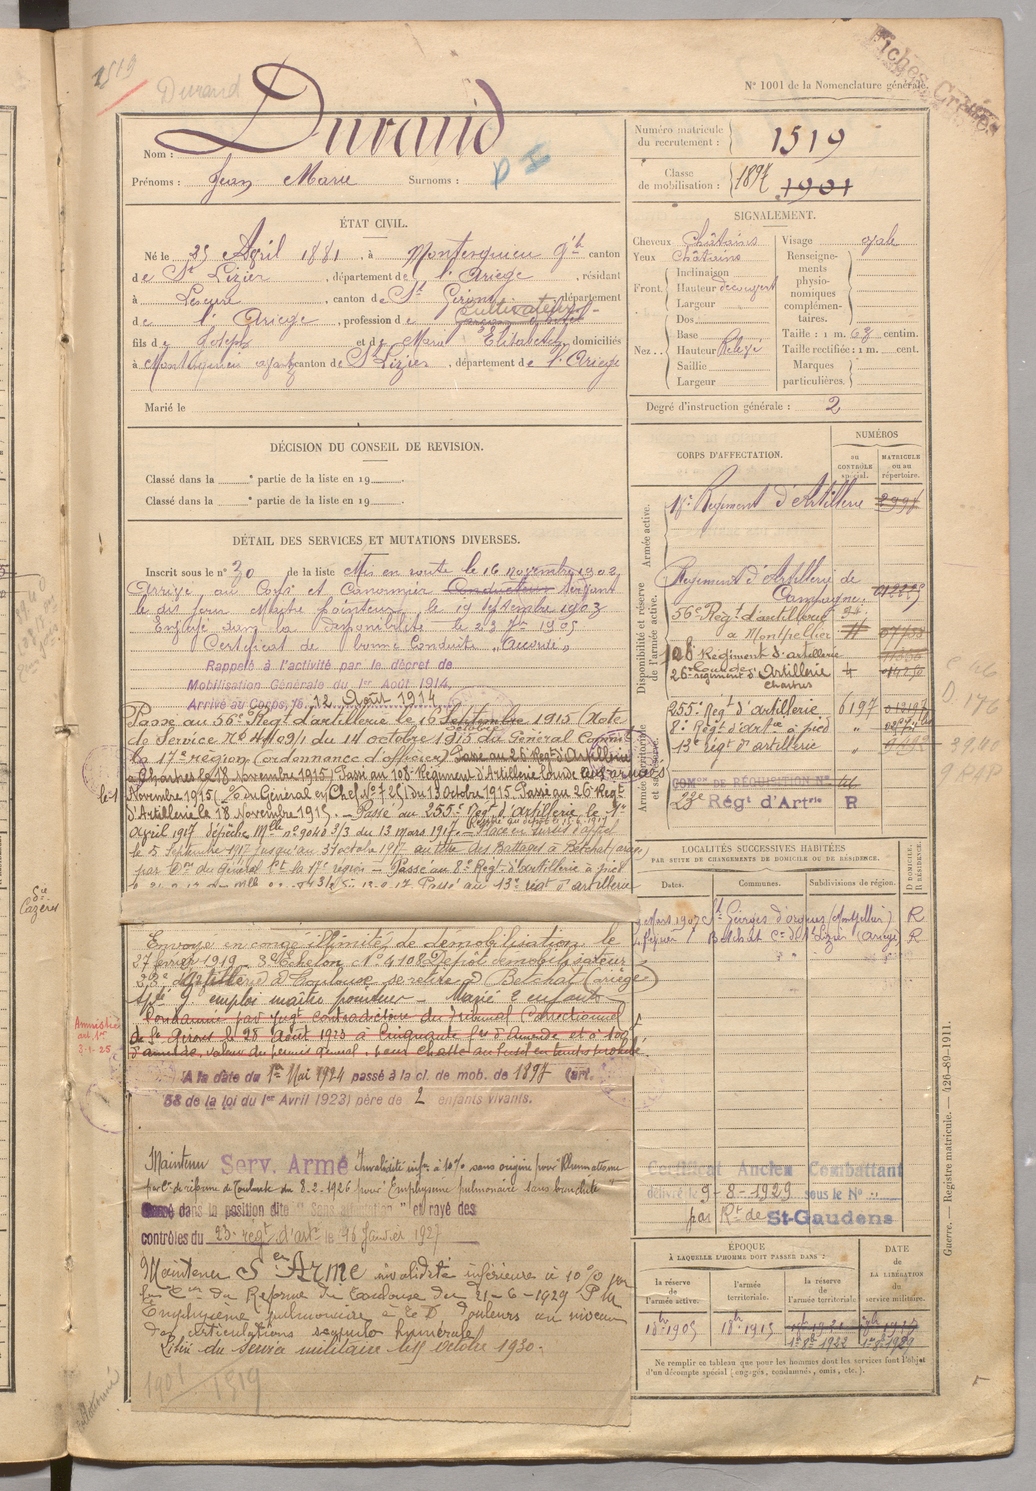 1519
Durand
Fiches Créées
N° 1001 de la Nomenclature générale.
Nom : Durand
Prénoms : Jean Marie Surnoms :
Numéro matricule du recrutement : 1519
Classe de mobilisation : 1897 1901
ÉTAT CIVIL.
Né le 25 Avril 1881, à Montesquieu canton
de St Lizier, département de l'Ariège, résidant
à Lescure, canton de St Girons, département
de l'Ariège, profession de cultivateur
fils de Joseph et de Marie Elisabeth domiciliés
à Montesquieu canton de St Lizier, département de l'Ariège
Marié le
SIGNALEMENT.
Cheveux Châtains
Yeux Châtains
Front. Inclinaison
Hauteur découvert
Largeur
Nez... Dos
Base
Hauteur Relevé
Saillie
Largeur
Visage ovale
Renseignements physionomiques complémentaires.
Taille : 1 m. 63 centim.
Taille rectifiée : 1 m. cent.
Marques particulières.
Degré d'instruction générale : 2
DÉCISION DU CONSEIL DE REVISION.
Classé dans la ° partie de la liste en 19 .
Classé dans la ° partie de la liste en 19 .
DÉTAIL DES SERVICES ET MUTATIONS DIVERSES.
Inscrit sous le n° 30 de la liste Mis en route le 16 novembre 1902,
Arrivé au Corps et Canonnier Conducteur Servant
le dit jour Maître pointeur le 19 septembre 1903
dans la disponibilité le 23 1905
Certificat de bonne Conduite "Accordé"
Rappelé à l'activité par le décret de
Mobilisation Générale du 1er Août 1914.
Arrivé au Corps, le 12 Août 1914
Passé au 56e Régt d'artillerie le 16 Septembre octobre 1915 (Note
de Service N° 4403/1 du 14 octobre 1915 du Général Commt
la 17e région (ordonnance d'officier) Passé au 26 Regt d'Artillerie
à Chartres le 18 Novembre 1915) Passé au 108e Régiment d'Artillerie lourde aux armées
le 1
Novembre 1915 (Général en Chef N° 725) du 13 Octobre 1915 Passé au 26 Regt
d'Artillerie le 18 Novembre 1915. – Passé au 255e Régt d'artillerie le 1er
Avril 1917 dépêche Mlle n° 9048 3/3 du 13 mars 1917. – Placé en sursis d'appel
le 5 Septembre 1917 jusqu'au 31 octobre 1917 au titre des Battages à Betchat
par du général la 17e région – Passé au 8e Régt d'artillerie à pied
Passé au 13e régt d'artillerie
Envoyé en congé illimité de démobilisation le
27 février 1919 3e Échelon N° 4108 Dépôt démobilisateur
23e d'Artillerie de Toulouse se retire à Betchat (Ariège)
emploi maître pointeur – Marié 2 enfants
Amnistié art. 1er 3-1-25
Condamné par jugt contradictoire du Tribunal Correctionnel
de St Girons le 28 Août 1923 à Cinquante frs d'amende et à 100 f
d'amende, valeur du permis général, pour chasse au fusil en temps prohibé.
A la date du 1er Mai 1924 passé à la cl. de mob. de 1897 (art.
58 de la loi du 1er Avril 1923) père de 2 enfants vivants.
Maintenu Serv. Armé Invalidité inf. à 10% sans origine pour "Rhumatisme
par Con de réforme de Toulouse du 8.2.1926 pour "Emphysème pulmonaire sans bronchite"
dans la position dite "Sans affectation" et rayé des
contrôles du 23e régt d'artie le 16 Janvier 1927
Maintenu Sce Armé invalidité inférieure à 10% par
la Con de Réforme de Toulouse du 21-6-1929 P.
Emphysème pulmonaire douleurs au niveau
des articulations scapulo humérale
Libéré du service militaire le 15 octobre 1930.
1901 1519
CORPS D'AFFECTATION.
NUMÉROS
au CONTRÔLE spécial.
MATRICULE ou au répertoire.
Armée active.
18e Régiment d'Artillerie
Disponibilité et réserve de l'armée active.
Régiment d'Artillerie de Campagne
56e Régt d'artillerie à Montpellier
108 Régiment d'artillerie lourde
26e régiment d'Artillerie Chartres
Armée territoriale et sa réserve.
255e Régt d'artillerie 6197
8e Régt d'artie à pied "
13e régt d'artillerie "
COMon DE RÉQUISITION N°
23e Régt d'Artrie R
LOCALITÉS SUCCESSIVES HABITÉES
PAR SUITE DE CHANGEMENTS DE DOMICILE OU DE RÉSIDENCE.
Dates. Communes. Subdivisions de région. D DOMICILE. R RÉSIDENCE.
Mars 1907 St Georges d'orques (Montpellier) R
Betchat Con de St Lizier (Ariège) R
Certificat Ancien Combattant
délivré le 9-8-1929 sous le N°
par Rt de St-Gaudens
ÉPOQUE
À LAQUELLE L'HOMME DOIT PASSER DANS :
la réserve de l'armée active. l'armée territoriale. la réserve de l'armée territoriale. DATE DE LA LIBÉRATION du service militaire.
1er 8bre 1922
Ne remplir ce tableau que pour les hommes dont les services font l'objet
d'un décompte spécial (engagés, condamnés, omis, etc.).
Guerre. — Registre matricule. — 426-89-1911.
Cazères